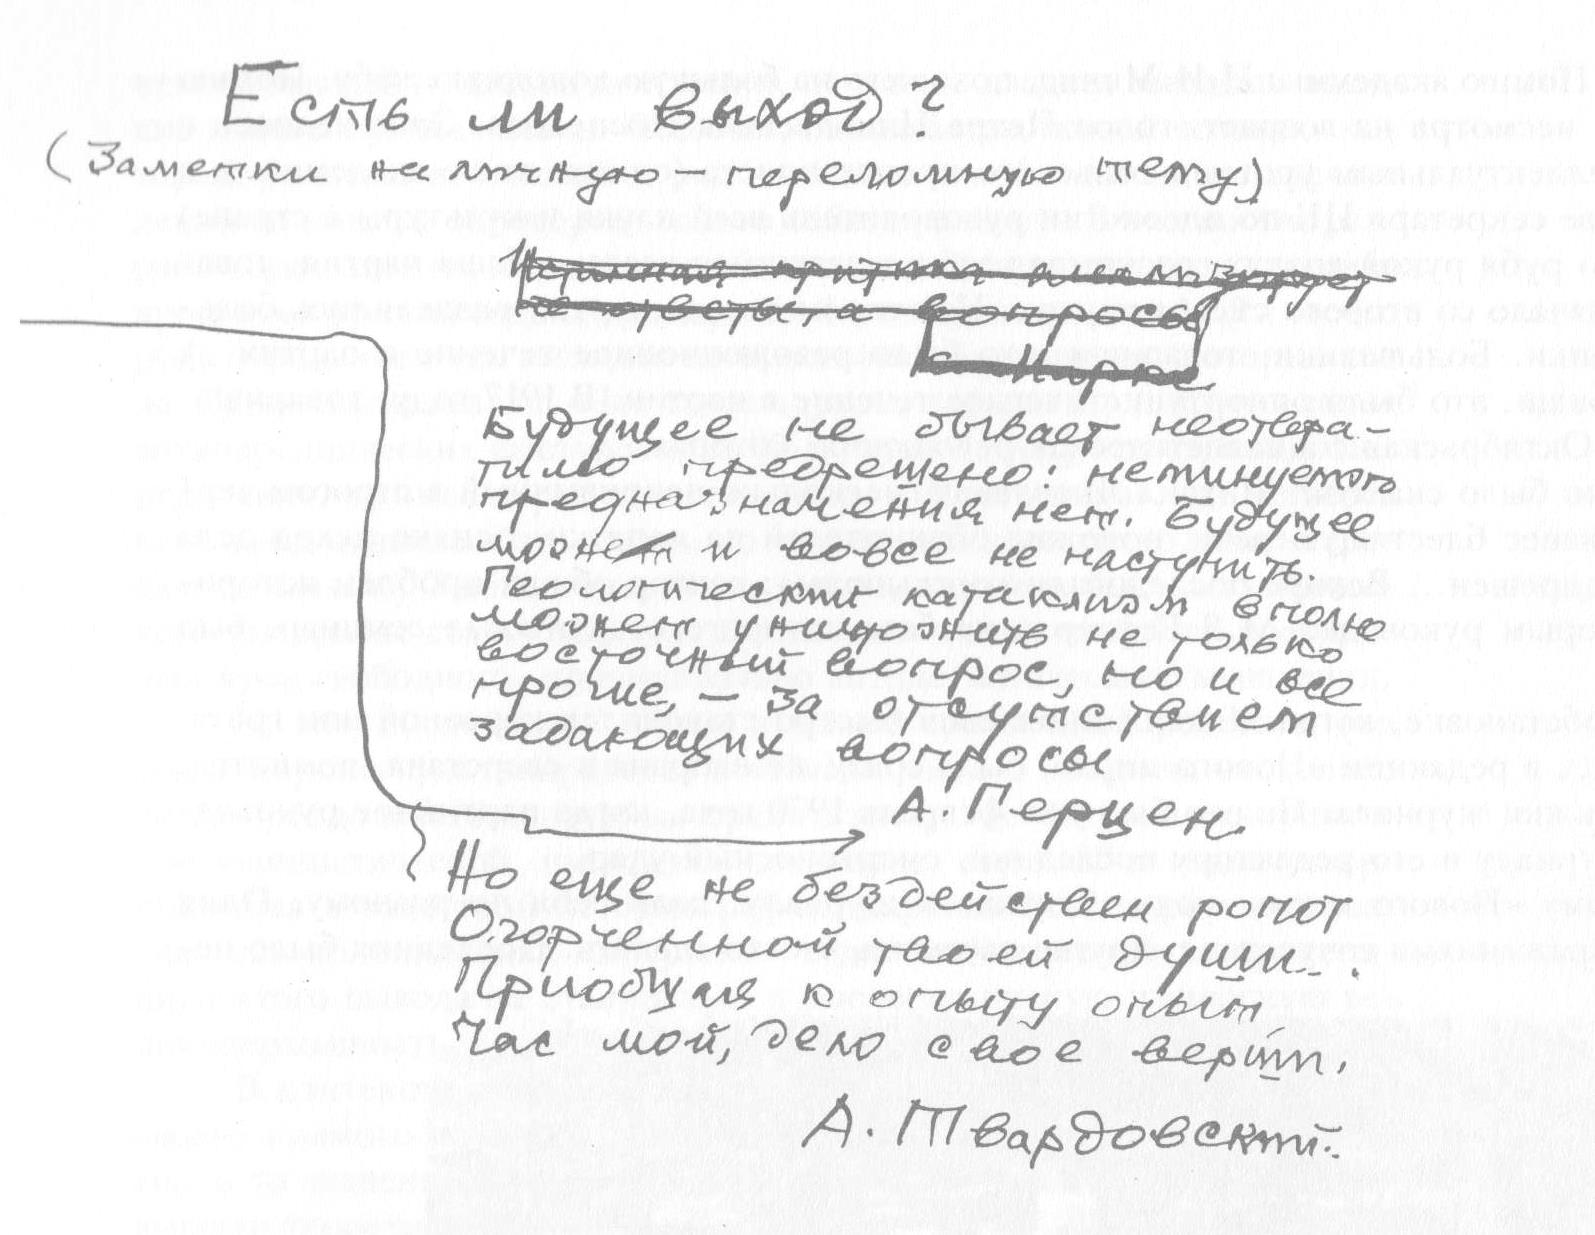 Есть ли выход?
(Заметки на личную - переломную тему)
Истинная критика анализирует
не ответы, а вопросы
К. Маркс
Будущее не бывает неотвра-
тимо предрешено: неминуемого
предназначения нет. Будущее
может и вовсе не наступить.
Геологический катаклизм вполне
может уничтожить не только
восточный вопрос, но и все
прочие, – за отсутствием
задающих вопросы
А. Герцен.
Но еще не бездействен ропот
Огорченной твоей души.
Приобщая к опыту опыт
Час мой, дело свое верши.
А. Твардовский.